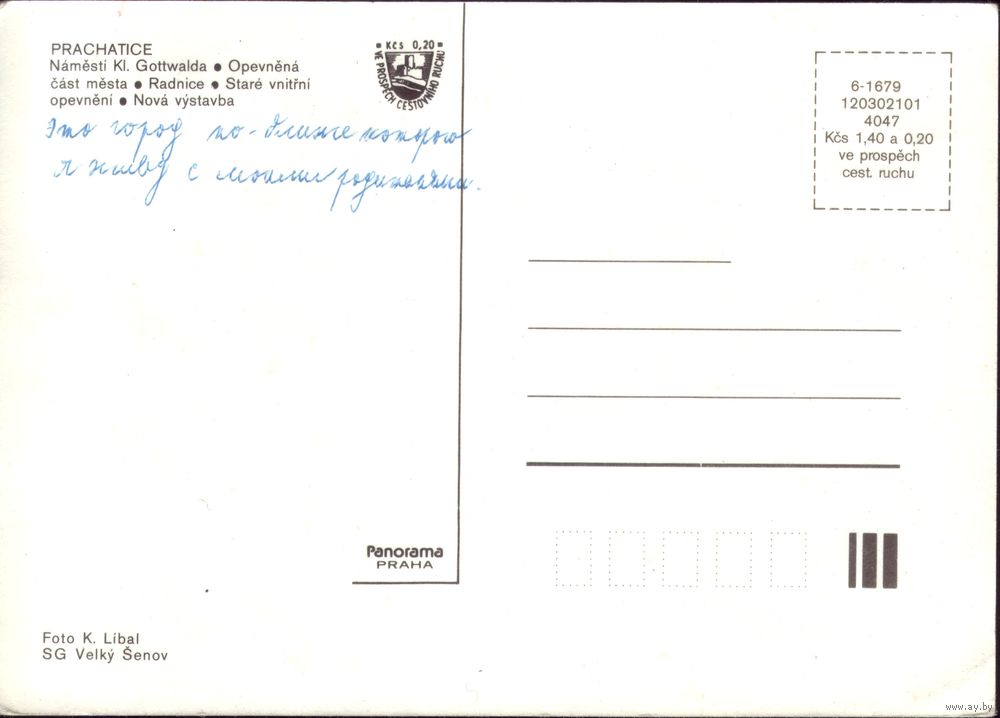 PRACHATICE
Náměstí Kl. Gottwalda ● Opevněná
část města ● Radnice ● Staré vnitřní
opevnění ● Nová výstavba
Kčs 0,20
VE PROSPĚCH CESTOVNÍHO RUCHU
Это город по-ближе которого
я живу с моими родителями.
6-1679
120302101
4047
Kčs 1,40 a 0,20
ve prospěch
cest. ruchu
Panorama
PRAHA
Foto K. Líbal
SG Velký Šenov
www.ay.by